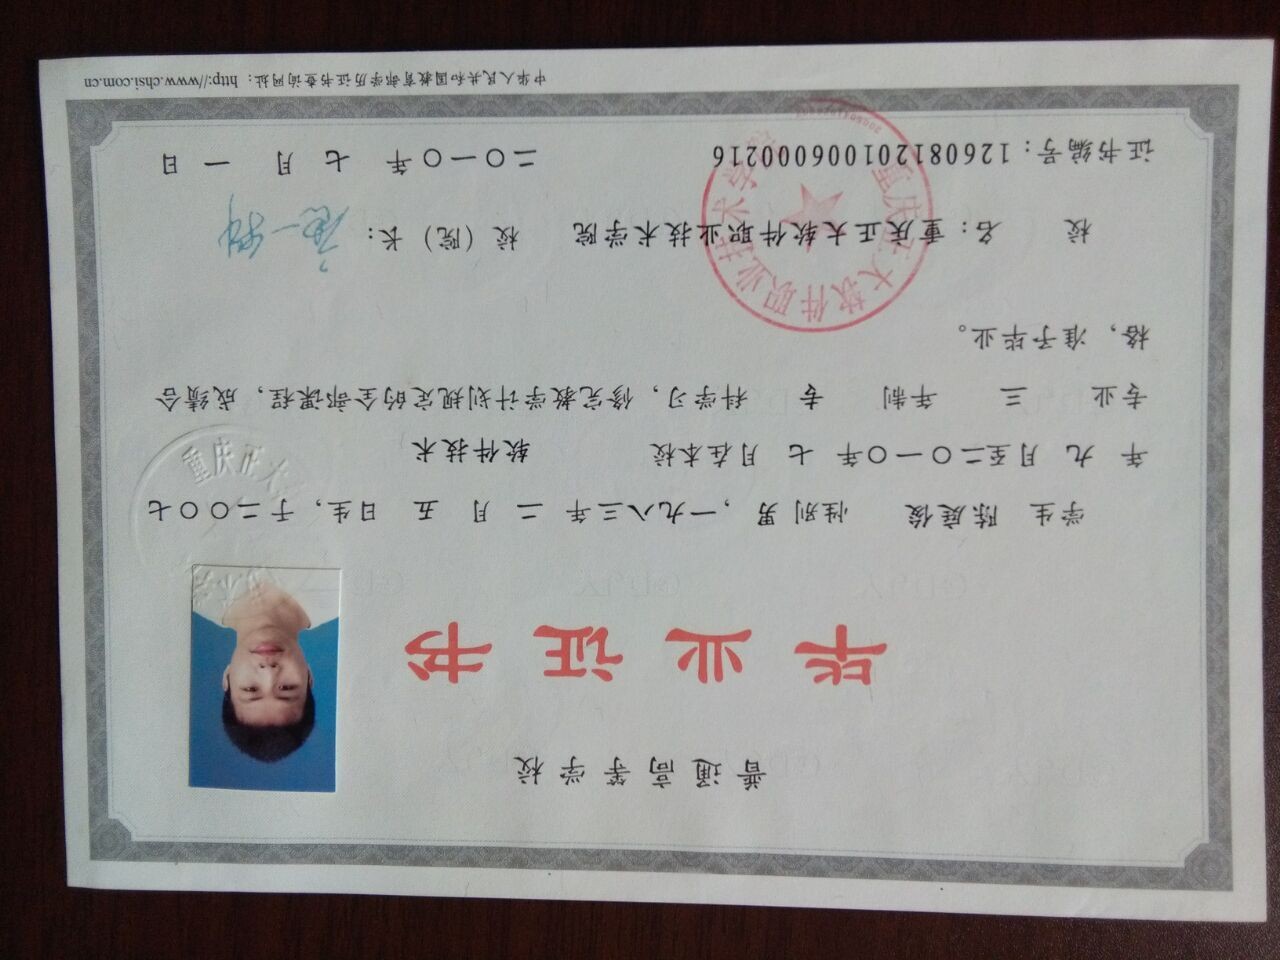 普通高等学校
毕业证书
学生 陈庭俊 性别 男 ，一九八三年 二 月 五 日生，于二〇〇七
年 九 月至二〇一〇年 七 月在本校 软件技术
专业 三 年制 专 科学习，修完教学计划规定的全部课程，成绩合
格，准予毕业。
校 名：重庆正大软件职业技术学院 校（院）长：
证书编号：126081201006000216 二〇一〇年 七 月 一 日
中华人民共和国教育部学历证书查询网址：http://www.chsi.com.cn
重庆正大软件职业技术学院
重庆正大